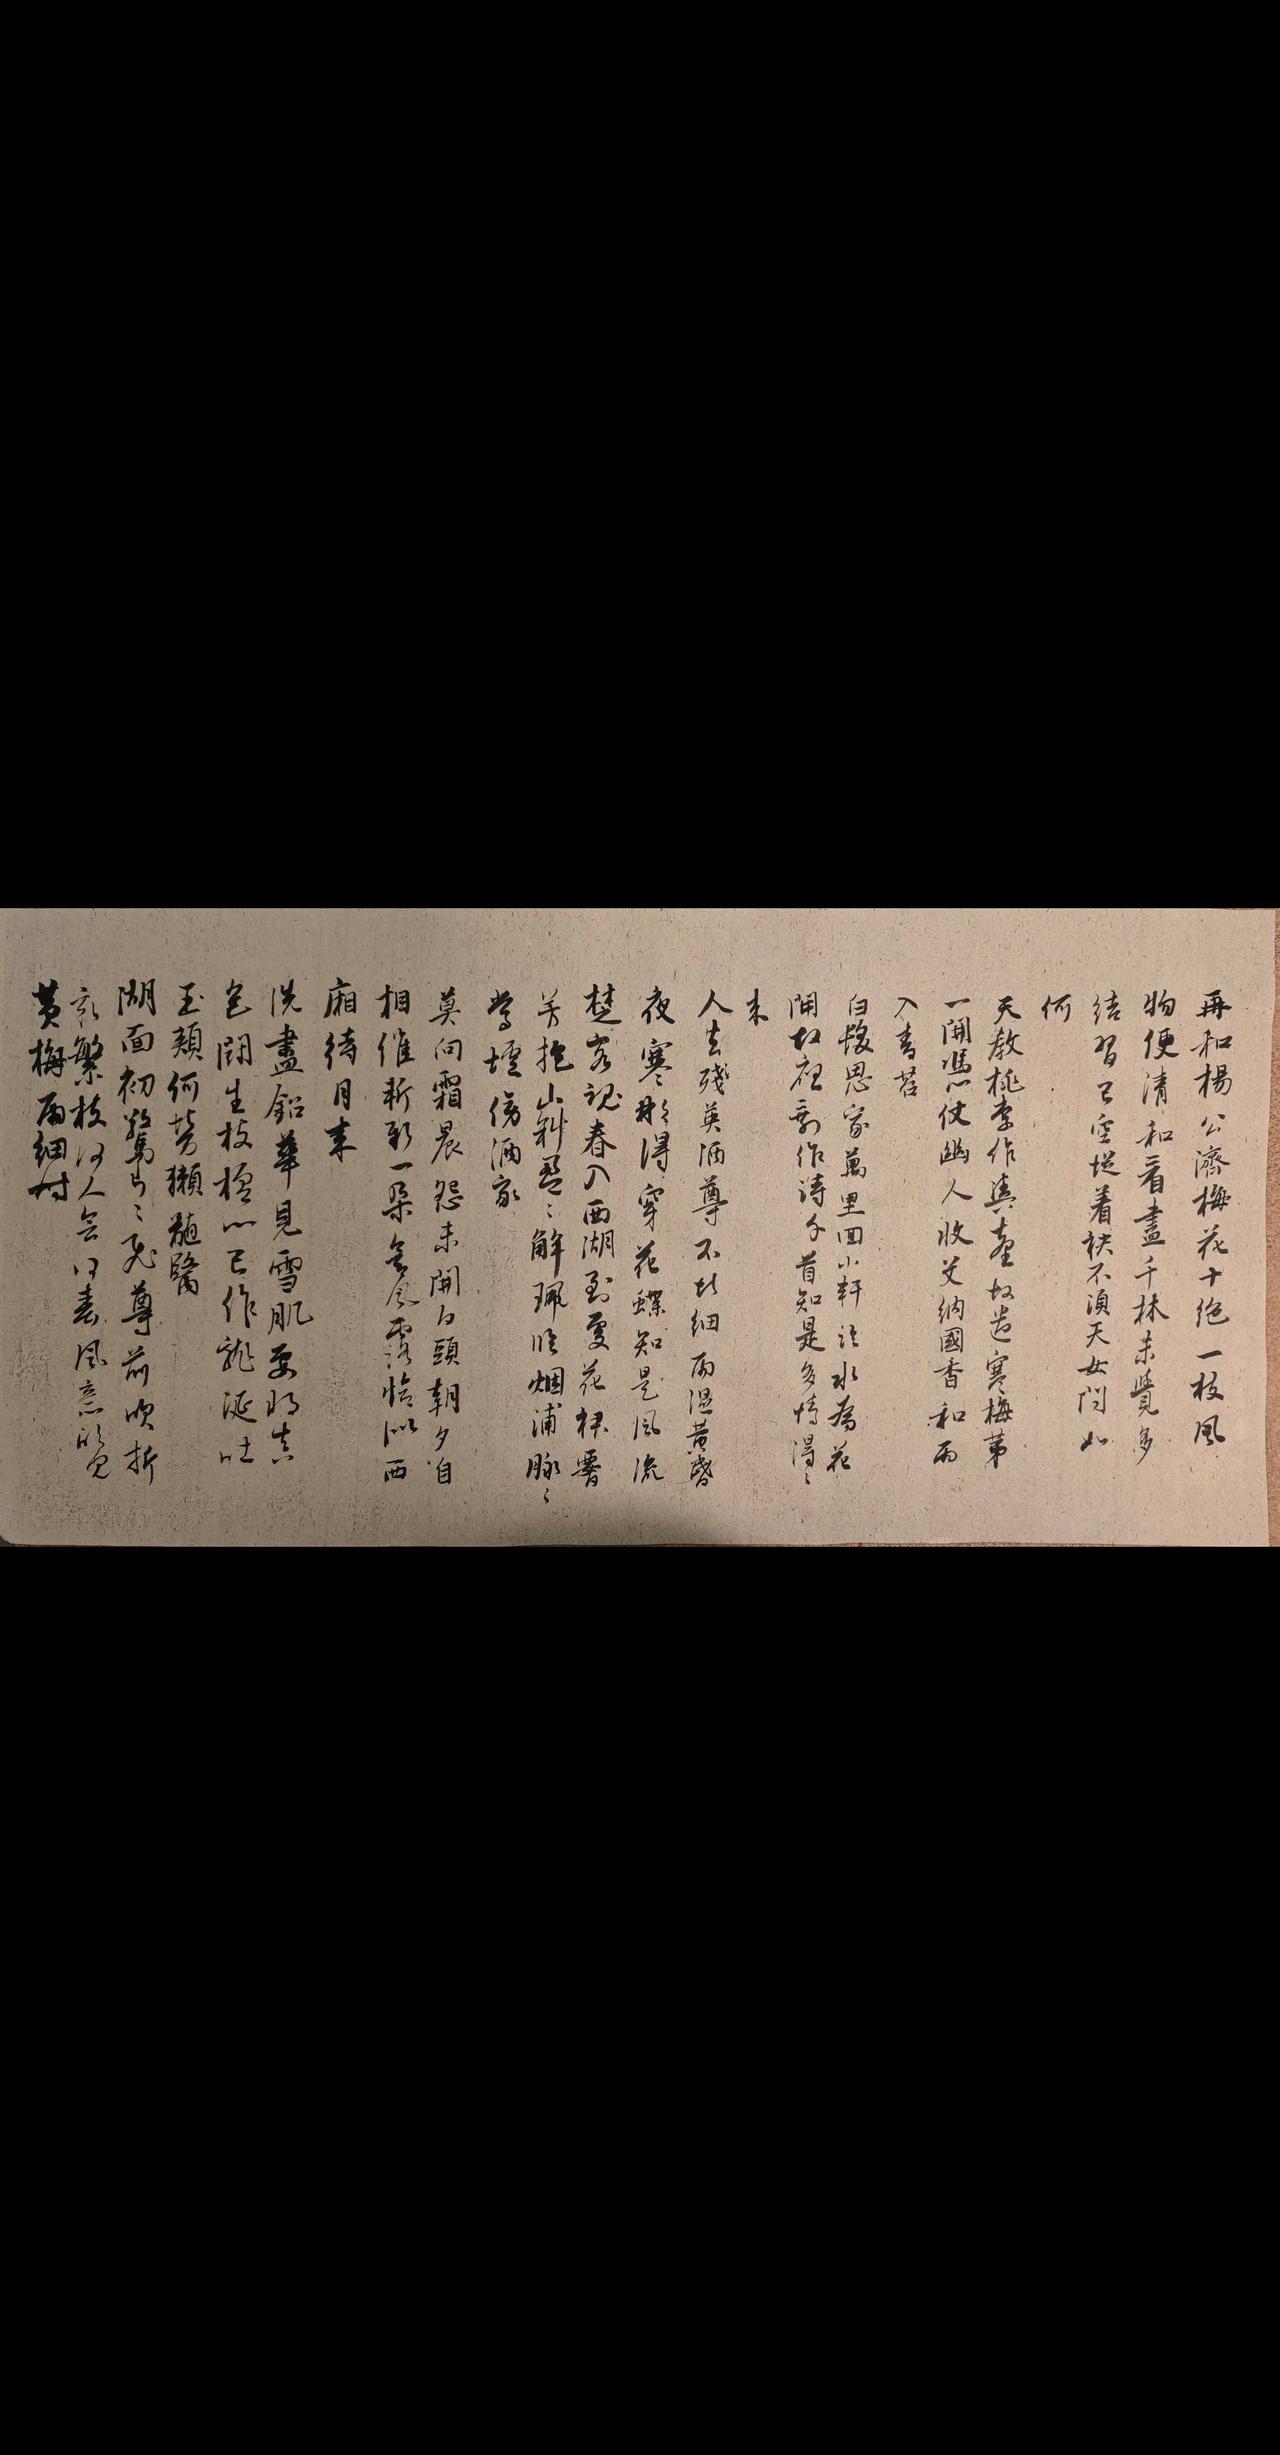 再和楊公濟梅花十絕一枝風
物便清和看盡千林未覺多
結習已空從着袂不須天女問如
何
天教桃李作輿臺故遣寒梅第
一開憑仗幽人收艾納國香和雨
入青苔
白髮思家萬里回小軒臨水為花
開故應剩作詩千首知是多情得〻
來
人去殘英滿酒尊不堪細雨濕黃昏
夜寒那得穿花蝶知是風流
楚客魂春入西湖到處花裙腰
芳草抱山斜盈〻解珮臨烟浦脉〻
當壚傍酒家
莫向霜晨怨未開白頭朝夕自
相催斬新一朵含風露恰似西
廂待月來
洗盡鉛華見雪肌要將真
色鬭生枝檀心已作龍涎吐
玉頰何勞獺髓醫
湖面初驚片〻飛尊前吹折
最繁枝何人會得春風意怕見
黃梅雨細時